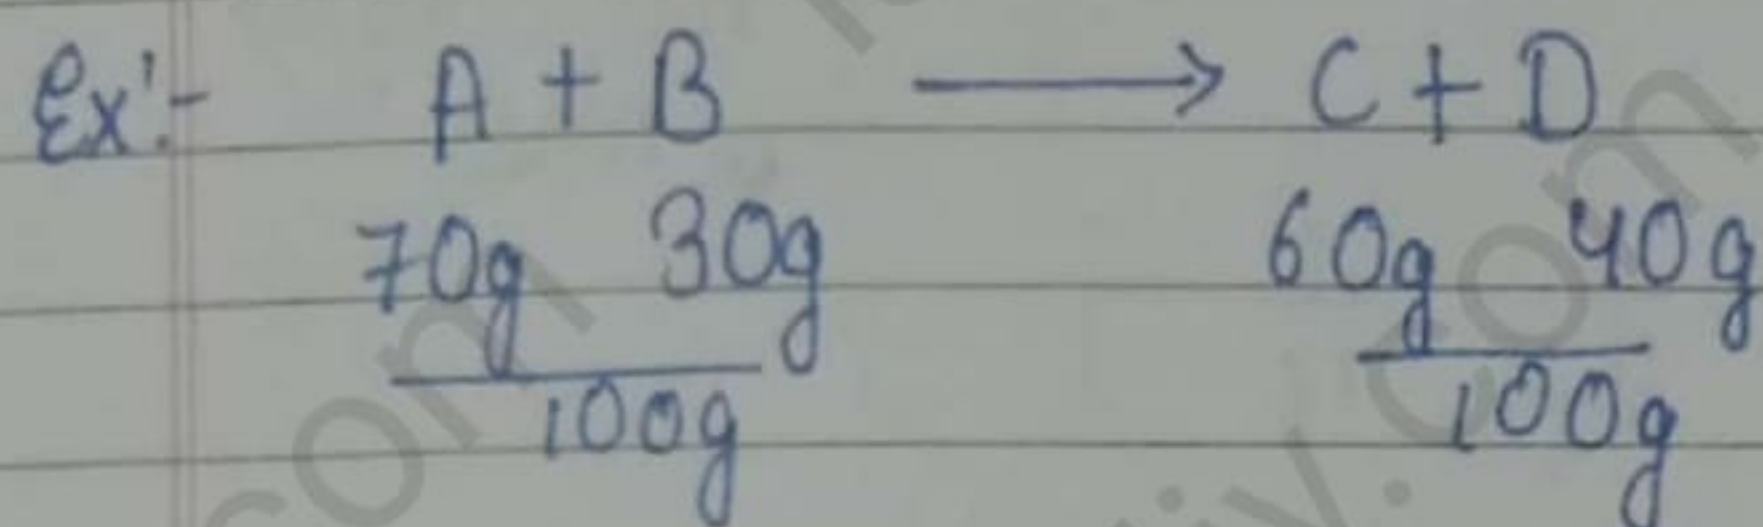 Ex:- A + B ⟶ C + D
70g 30g 60g 40g
100g 100g